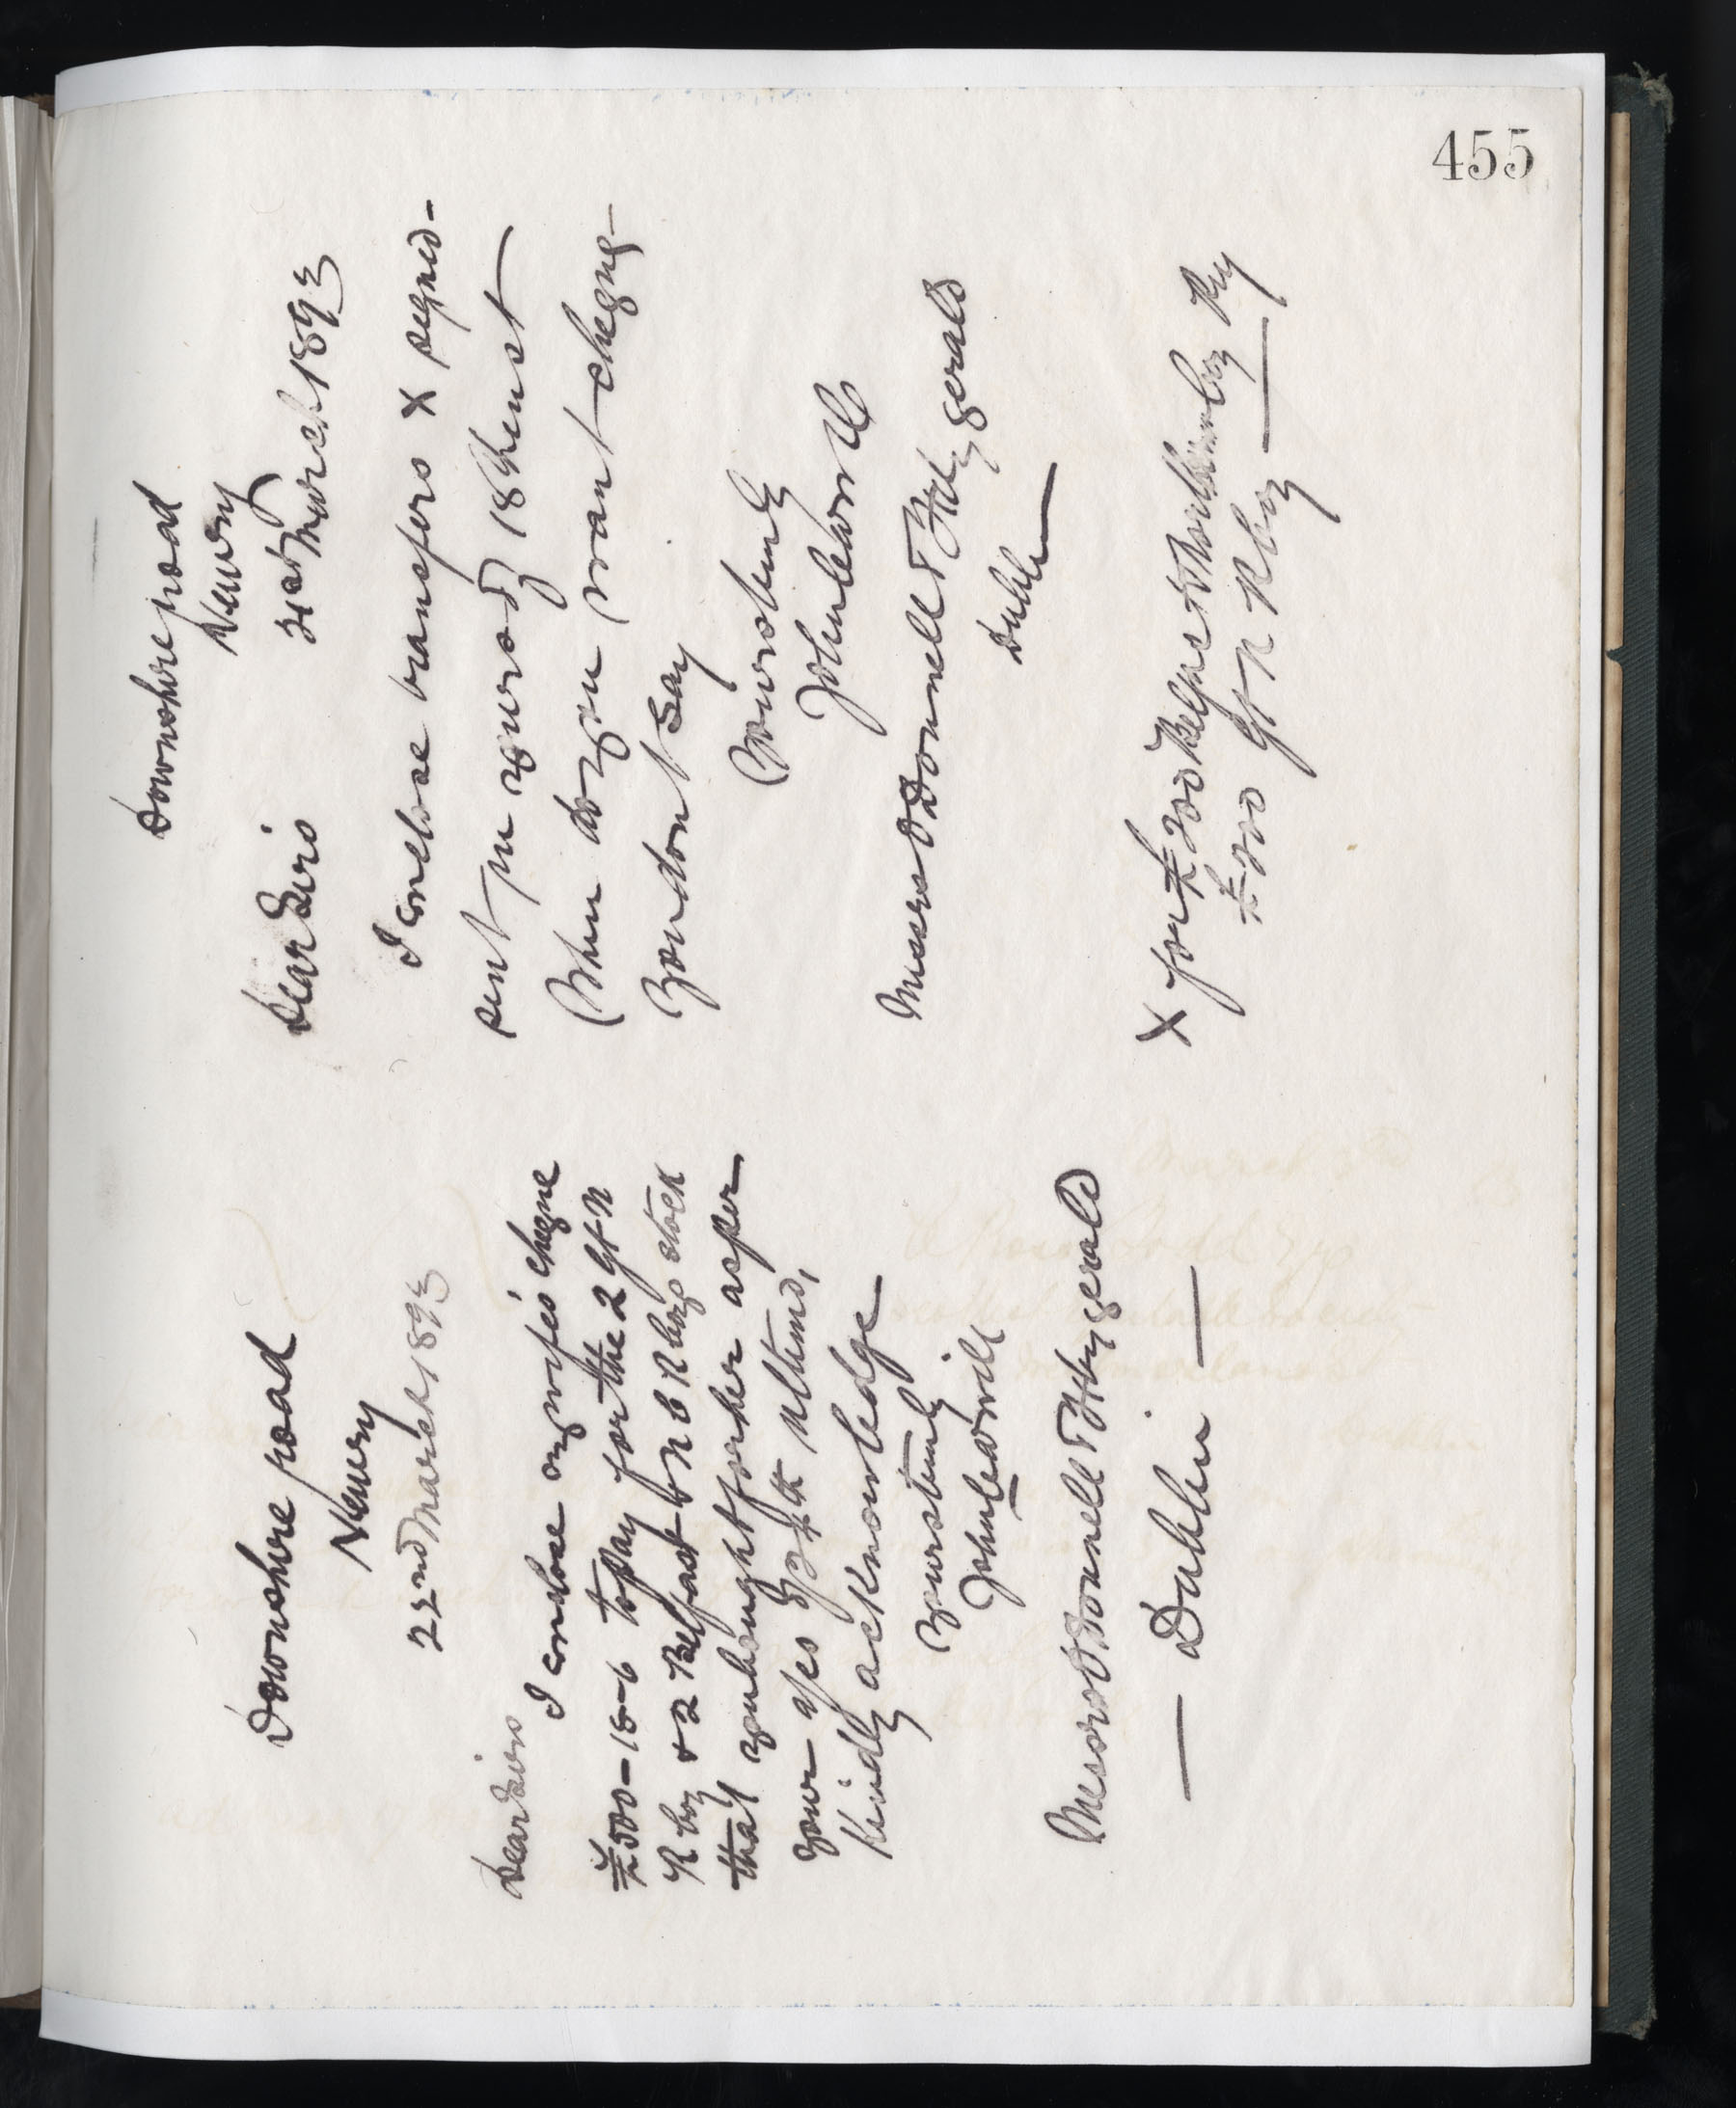 455
Downshire road
Newry
22nd March 1893
Dear Sirs
I enclose my wife's cheque
£500-18-6 to pay for the 2 Gt N
R Coy & 2 Belfast & N C R Coys stock
that you bought for her as per
your of 24th ultimo,
Kindly acknowledge
yours truly
John
Messrs O Donnell & Fitzgerald
— Dublin —
Downshire road
Newry
21st March 1893
Dear Sirs
I enclose transfers X signed
sent me yours of 18th inst
When do you want cheque
You dont say
Yours truly
John
Messrs O Donnell & Fitzgerald
Dublin
X for £200 Belfast & Northern Coy Ry
£200 Gt N R Coy